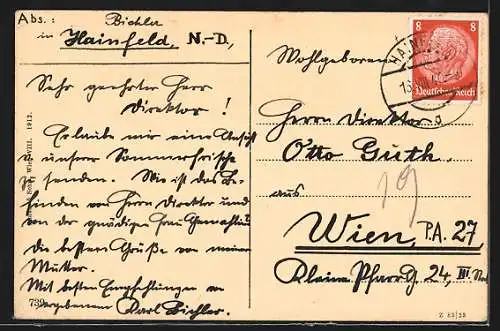 Abs.: Bichler
in Hainfeld, N.-D,
Sehr geehrter Herr
Direktor !
Erlaube mir eine Ansicht
unserer Sommerfrische
zu senden. Wie ist das Be-
finden von Herrn Direktor und
von der gnädigen Frau Gemahlin?
Die besten Grüße von meiner
Mutter.
Mit besten Empfehlungen
ergebenen Karl Bichler.
739
1912.
8 8
Deutsches Reich
Wohlgeboren
Herrn Direktor
Otto Guth
aus
19
Wien, P.A. 27
Kleine Pfarrg. 24, III.